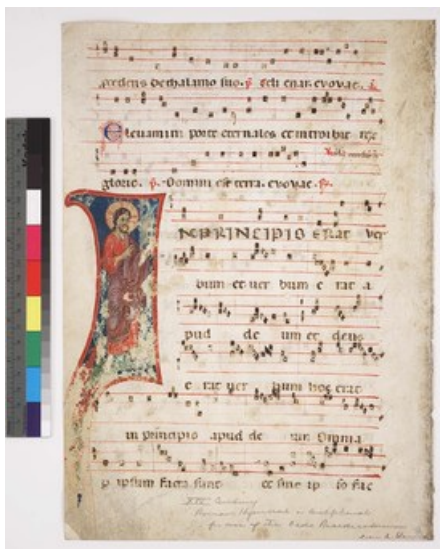 cedens de thalamo suo. p. celi enar. evovae. a.
Elevamini porte eternales et introibit rex
glorie. p. Domini est terra. evovae.
IN PRINCIPIO ERAT ver
bum et ver bum e rat a
pud de um et deus
e rat ver bum hoc erat
in principio apud de um Omnia
p ipsum facta sunt et sine ip so fac
Century
Roman Hymnal
for use of the